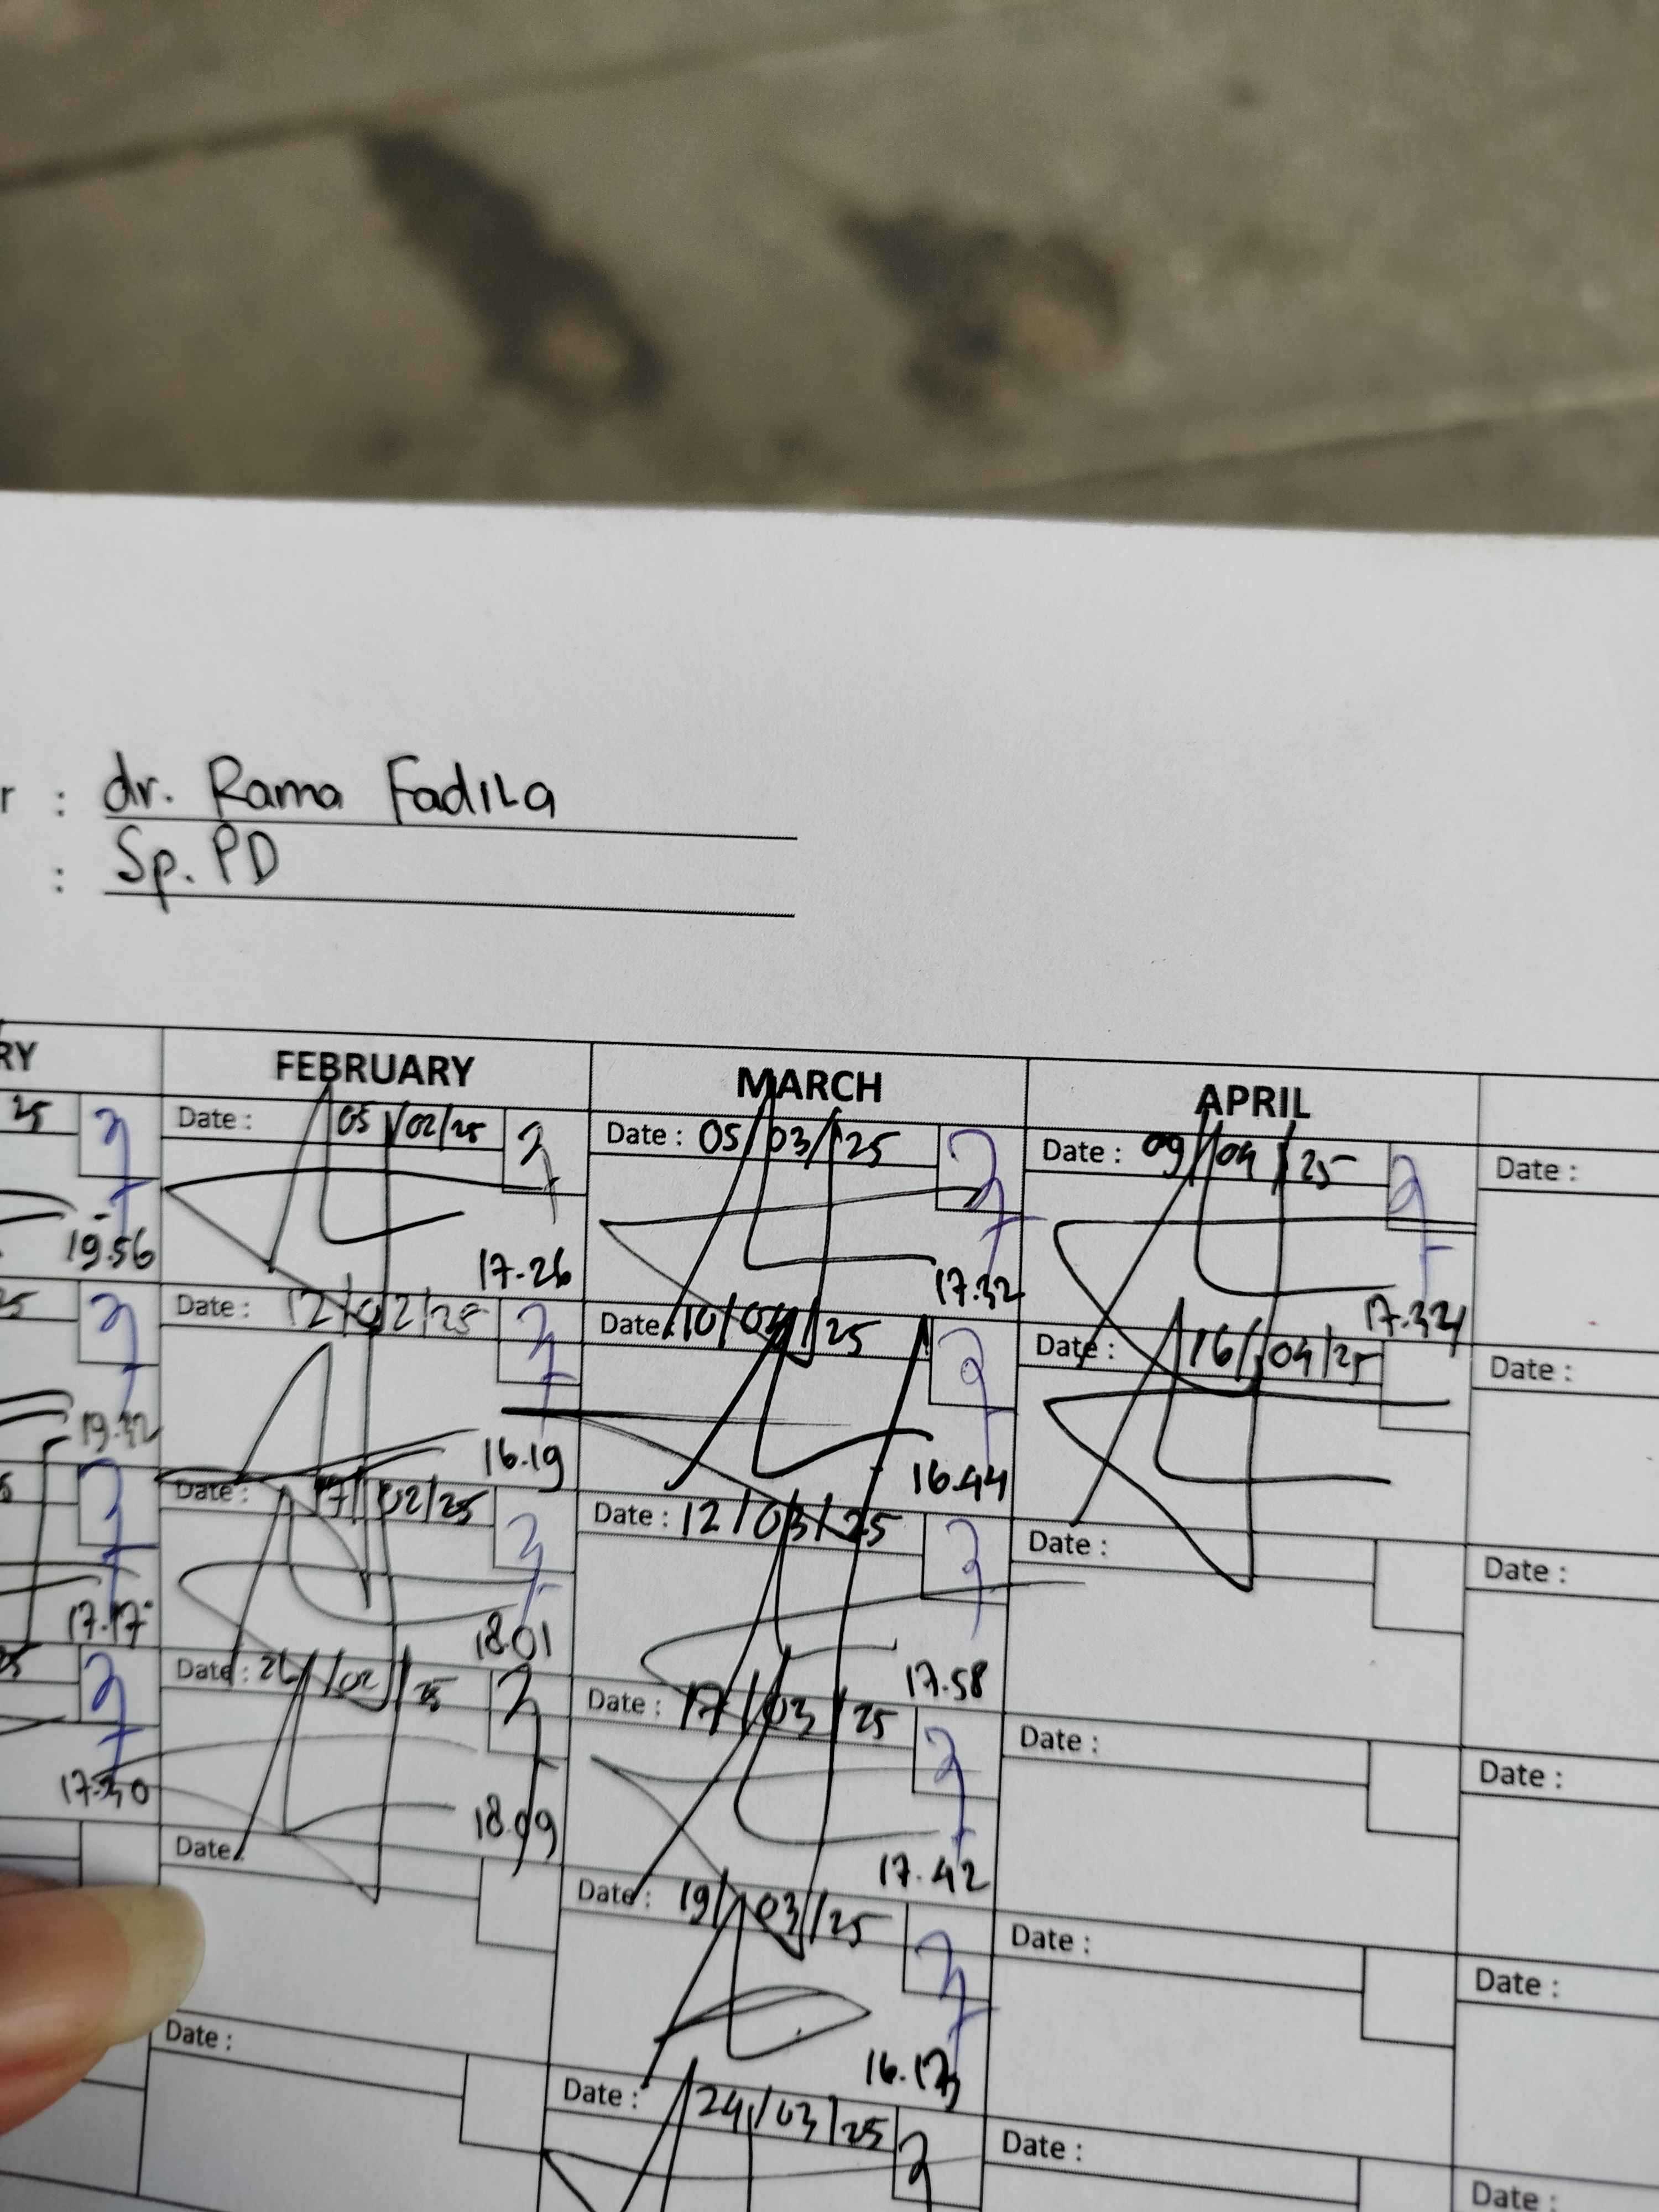 r : dr. Rama Fadila
: Sp. PD
RY FEBRUARY MARCH APRIL
25 Date : 05/02/25 Date : 05/03/25 Date : 09/04/25 Date :
19.56 17.26 17.32 17.32
Date : 12/02/25 Date : 10/03/25 Date : 16/04/25 Date :
19.32 16.19 16.44
Date : 17/02/25 Date : 12/03/25 Date : Date :
17.17 18.01 17.58
Date : 26/02/25 Date : 17/03/25 Date : Date :
17.30 18.09 17.42
Date : Date : 19/03/25 Date : Date :
16.13
Date : Date : 24/03/25 Date : Date :